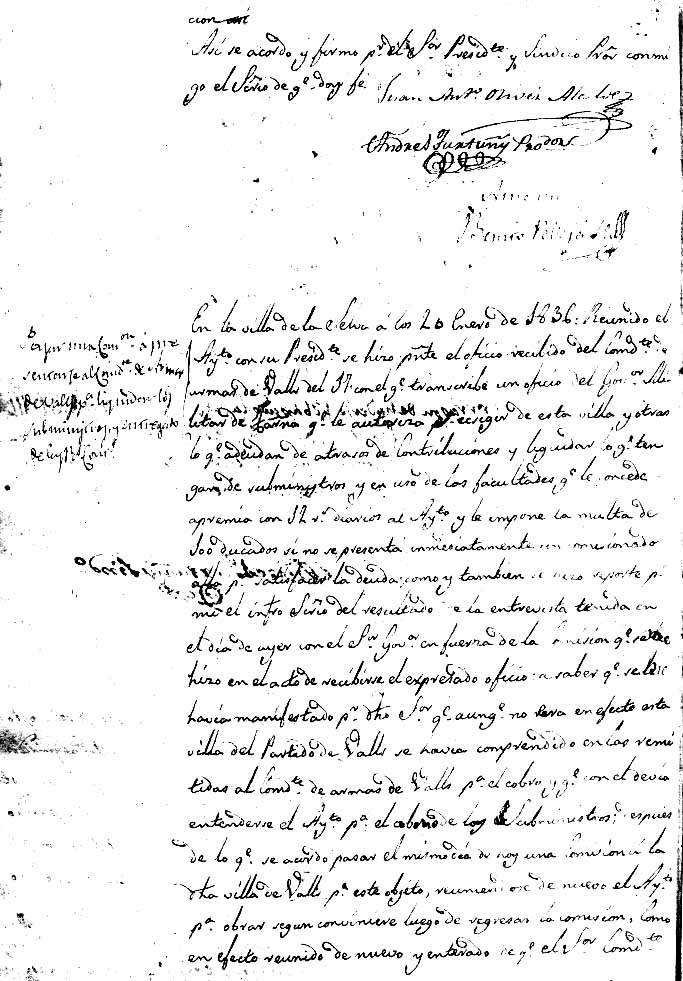 cion
Asi se acordo y firmo p.r el Sor Presid.te y Sindico Pror conmi
go el Sr̃io de q.e doy fe
Juan Ant.o Oliver Alcalde
Andres Furtuñy Prodor
En la villa de la Selva á los 20 Enero de 1836: Reunido el
Ay.to con su Presid.te se hizo p.nte el oficio recibido del Comd.te de
armas de Valls del 17 con el q.e transcribe un oficio del Gov.or Mili
litar de Tarna q.e le autoriza p.a ecsigir de esta villa y otras
lo q.e adeudan de atrasos de Contribuciones y liquidar lo q.e ten
gan de suministros, y en uso de las facultades q.e le concede
apremia con 12 r.s diarios al Ay.to y le impone la multa de
500 ducados si no se presenta inmediatamente un comisionado
p.a satisfacer la deuda: como y tambien se hizo reporte p.r
mi el infro Sr̃io del resultado de la entrevista tenida en
el dia de ayer con el S.or Gov.or en fuerza de la Comisión q.e se me
hizo en el acto de recibirse el expresado oficio: a saber q.e se le
havia manifestado p.r dho S.or q.e aunq.e no era en efecto esta
villa del Partido de Valls se havia comprendido en las remi
tidas al Comd.te de armas de Valls p.a el cobro, y q.e con el devia
entenderse el Ay.to p.a el abono de los Subministros; despues
de lo q.e se acordo pasar el mismo dia de hoy una Comision á la
dha villa de Valls p.a este objeto, reuniendose de nuevo el Ay.to
p.a obrar segun conviniere luego de regresar la comision; Como
en efecto reunido de nuevo y enterado de q.e el S.or Comd.te